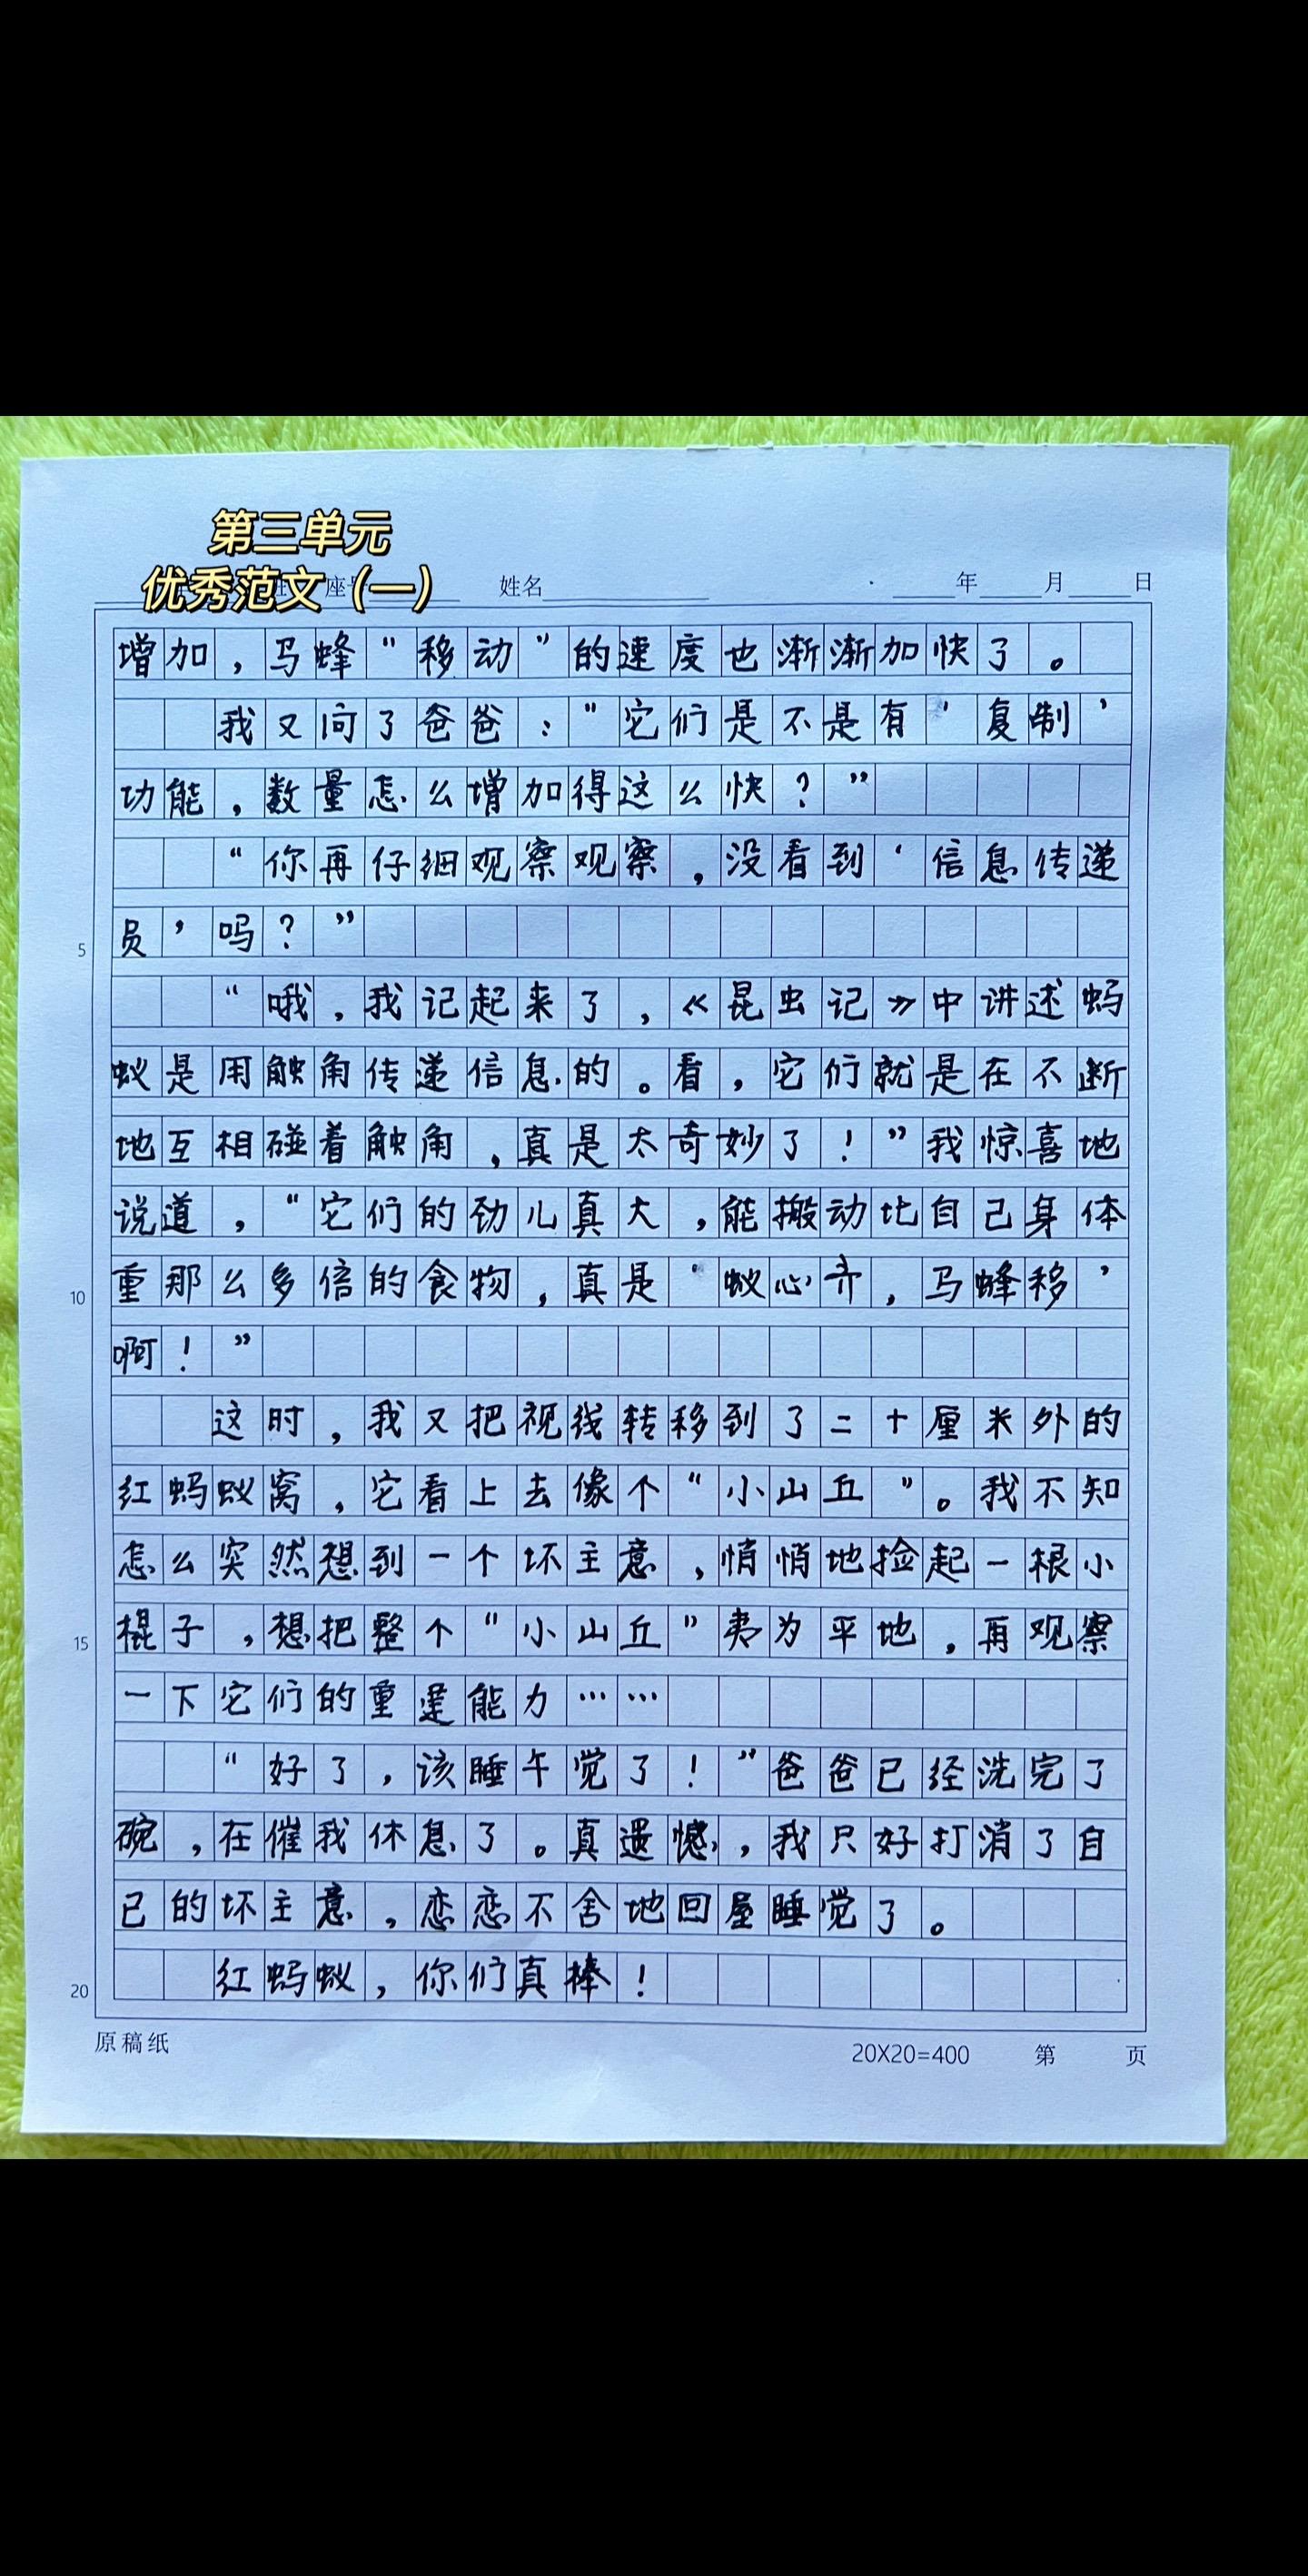 第三单元
优秀范文（一）
座 姓名 年 月 日
增加，马蜂“移动”的速度也渐渐加快了。
我又问了爸爸：“它们是不是有‘复制’
功能，数量怎么增加得这么快？”
“你再仔细观察观察，没看到‘信息传递
5 员’吗？”
“哦，我记起来了，《昆虫记》中讲述蚂
蚁是用触角传递信息的。看，它们就是在不断
地互相碰着触角，真是太奇妙了！”我惊喜地
说道，“它们的劲儿真大，能搬动比自己身体
10 重那么多倍的食物，真是‘蚁心齐，马蜂移’
啊！”
这时，我又把视线转移到了二十厘米外的
红蚂蚁窝，它看上去像个“小山丘”。我不知
怎么突然想到一个坏主意，悄悄地捡起一根小
15 棍子，想把整个“小山丘”夷为平地，再观察
一下它们的重建能力……
“好了，该睡午觉了！”爸爸已经洗完了
碗，在催我休息了。真遗憾，我只好打消了自
己的坏主意，恋恋不舍地回屋睡觉了。
20 红蚂蚁，你们真棒！
原稿纸 20X20=400 第 页